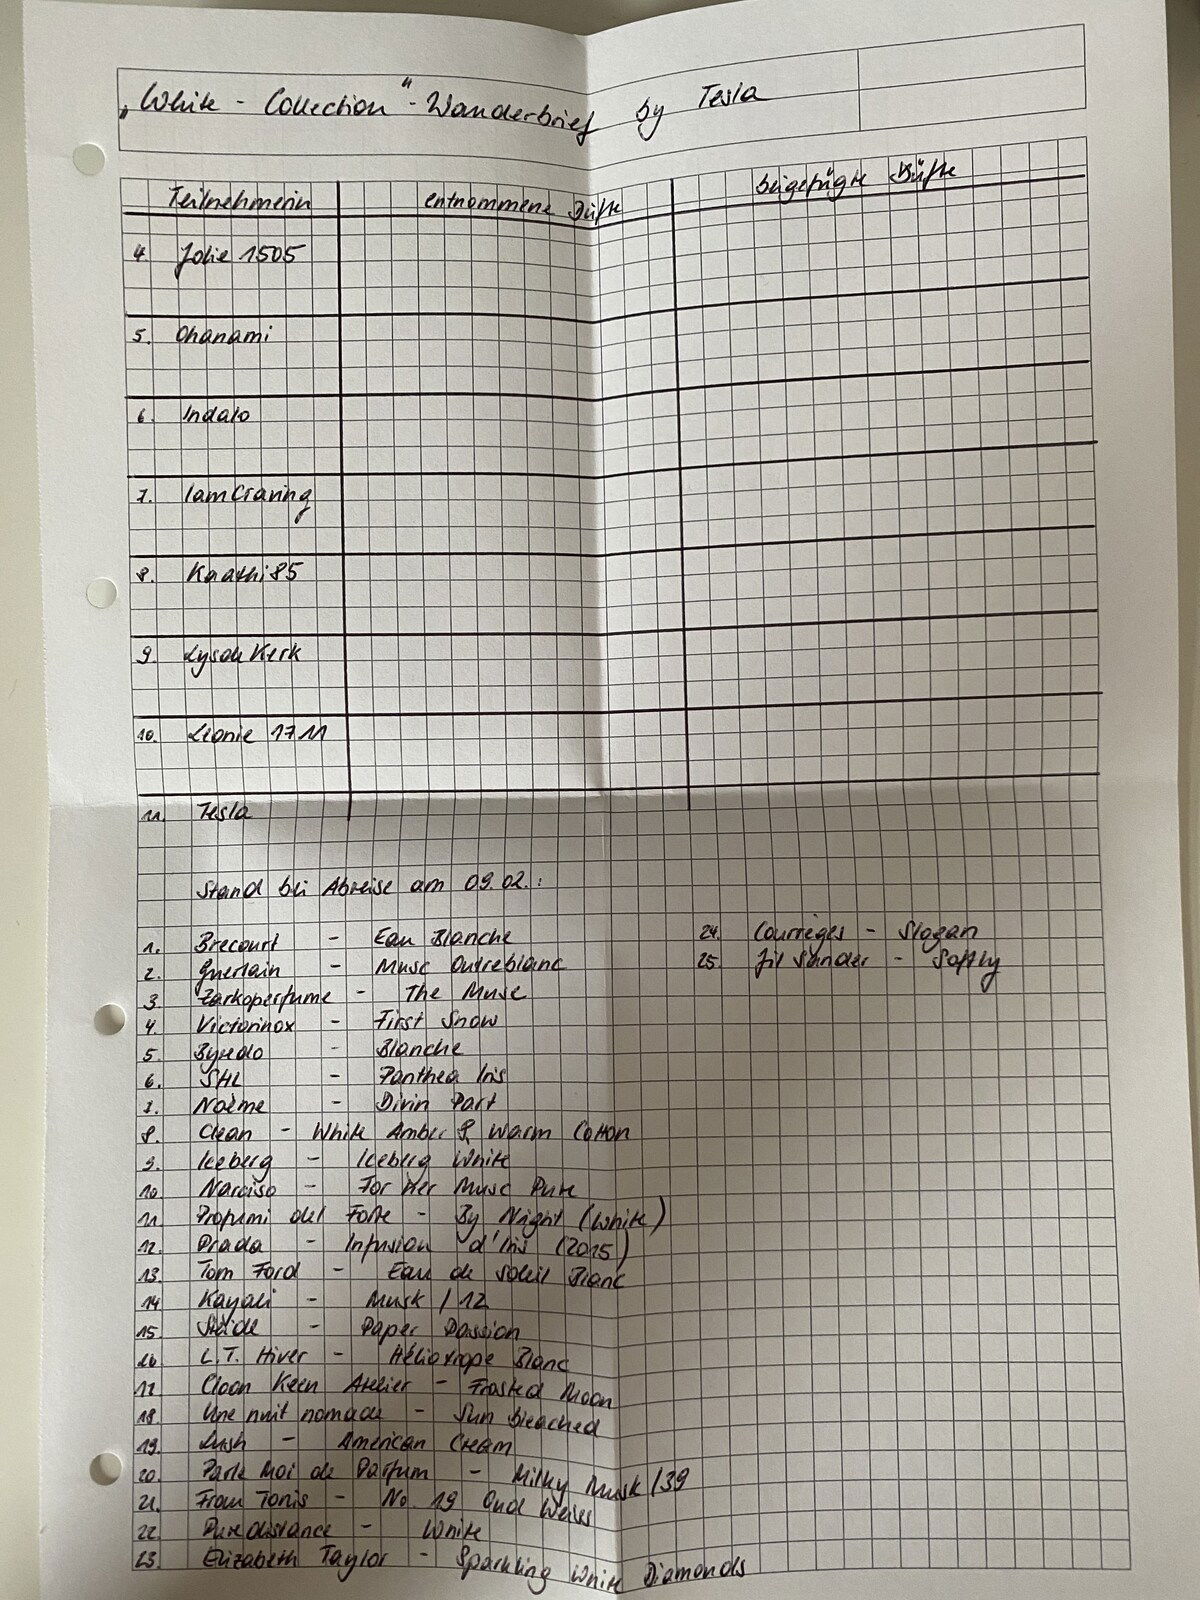 „White - Collection" - Wanderbrief by Tesla
Teilnehmerin entnommene Düfte beigefügte Düfte
4. Jolie 1505
5. Ohanami
6. Indalo
7. IamCraving
8. Kaathi85
9. LysodeKerk
10. Lionie 1711
11. Tesla
Stand bei Abreise am 09.02.:
1. Brecourt - Eau Blanche
2. Guerlain - Musc Outreblanc
3. Zarkoperfume - The Muse
4. Victorinox - First Snow
5. Byredo - Blanche
6. SHL - Panthea Iris
7. Noème - Divin Part
8. Clean - White Amber & Warm Cotton
9. Iceberg - Iceberg White
10 Narciso - For Her Musc Pure
11 Profumi del Forte - By Night (White)
12. Prada - Infusion d'Iris (2015)
13. Tom Ford - Eau de Soleil Blanc
14 Kayali - Musk / 12
15 Steidl - Paper Passion
16 L.T. Hiver - Héliotrope Blanc
17 Cloon Keen Atelier - Frosted Moon
18. Une nuit nomade - Sun bleached
19. Lush - American Cream
20. Parle Moi de Parfum - Milky Musk /39
21. Frau Tonis - No. 19 Oud Weiss
22. Puredistance - White
23. Elizabeth Taylor - Sparkling White Diamonds
24. Courrèges - Slogan
25. Jil Sander - Softly